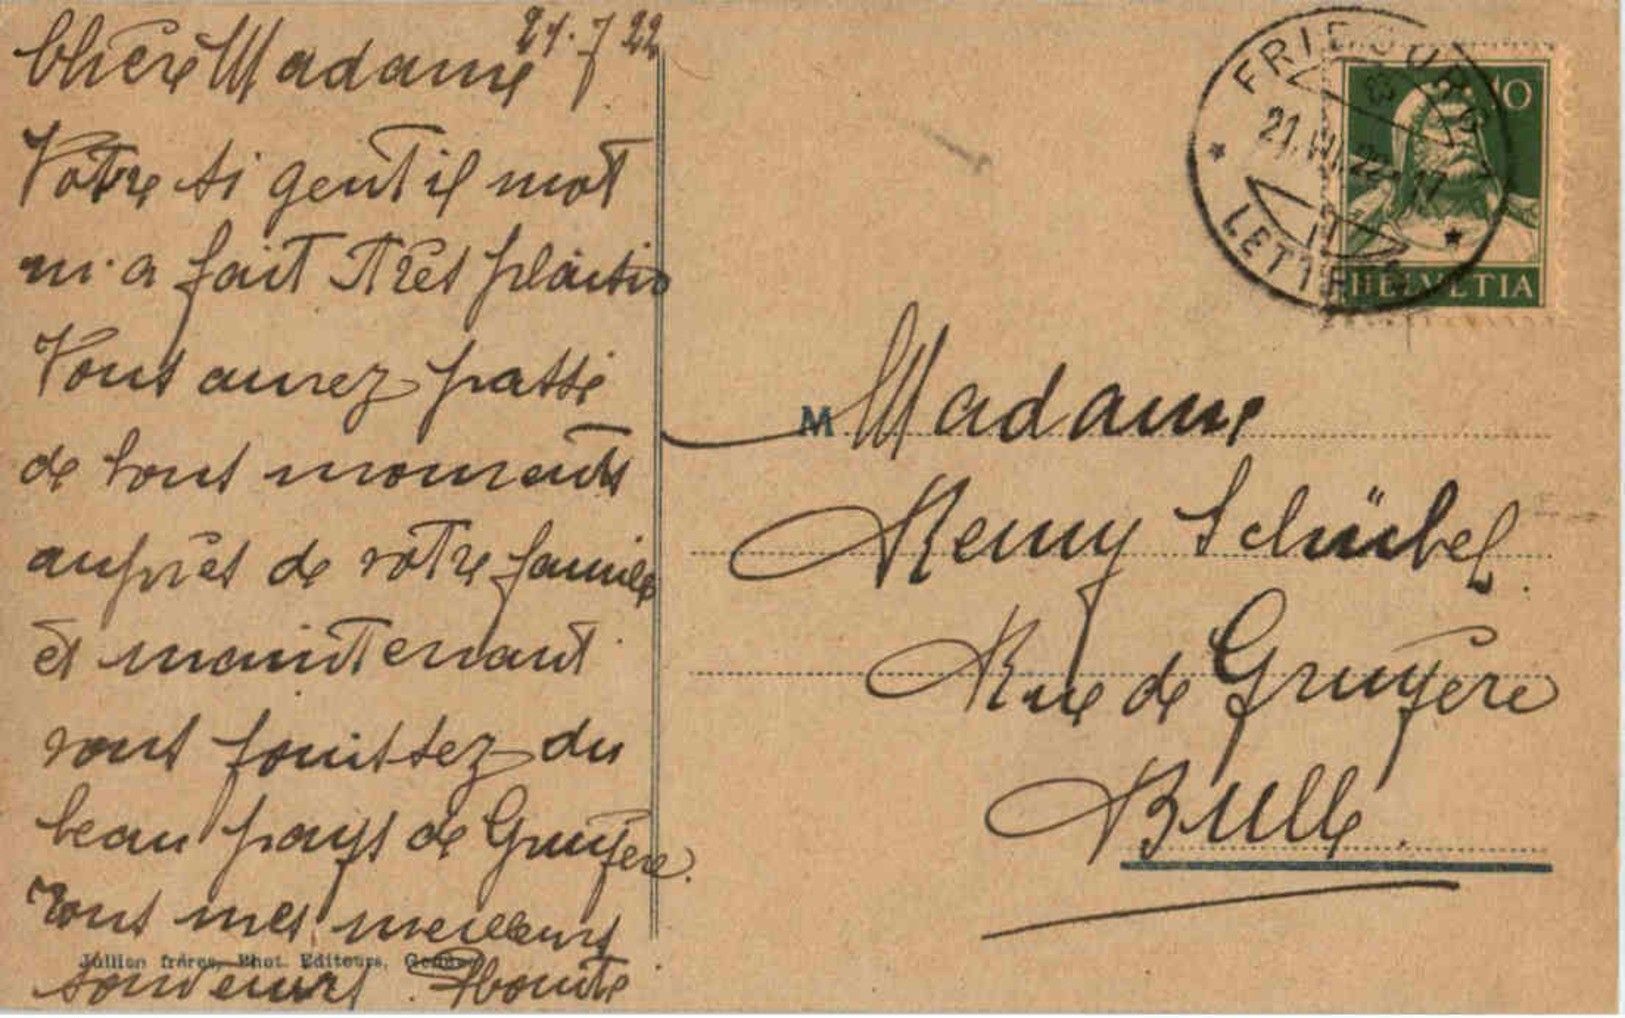 21.7 22
Chère Madame
Votre si gentil mot
m'a fait très plaisir
Vous aurez passé
de bons moments
auprès de votre famille
et maintenant
vous jouissez du
beau pays de Gruyère.
Tous mes meilleurs
souvenirs
Jullien frères, Phot. Editeurs, Genève
FRIBOURG 1
21.VII.22 17
LETTRES
10
HELVETIA
M Madame
Remy Schübel.
Rue de Gruyère
Bulle.